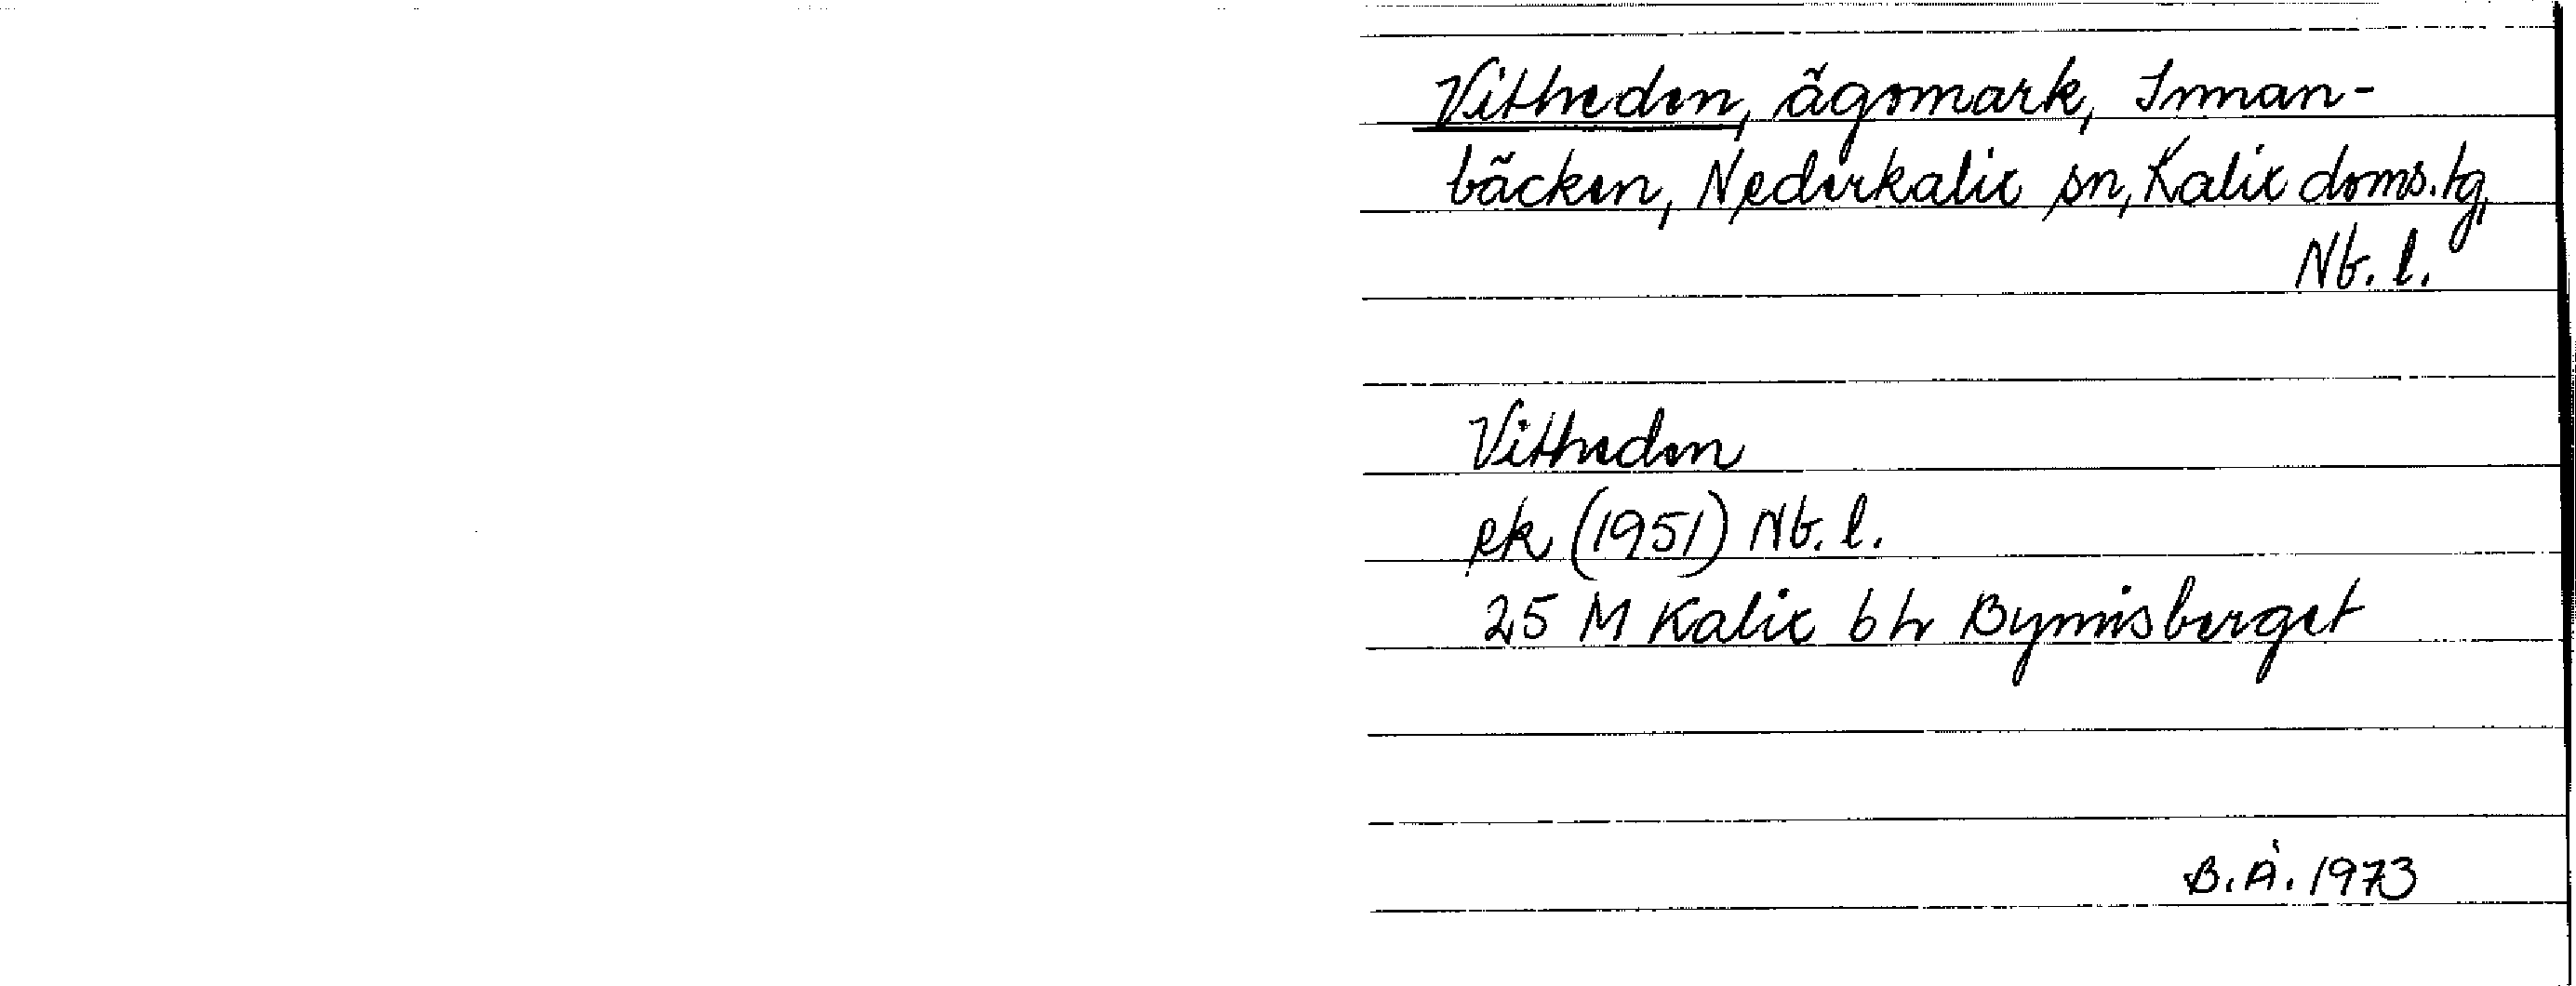 Vitheden, ägomark, Innan-
bäcken, Nederkalix sn, Kalix doms.tg,
Nb. l.
Vitheden
ek (1951) Nb. l.
25 M Kalix 6 h Bynnisberget
B.Å. 1973